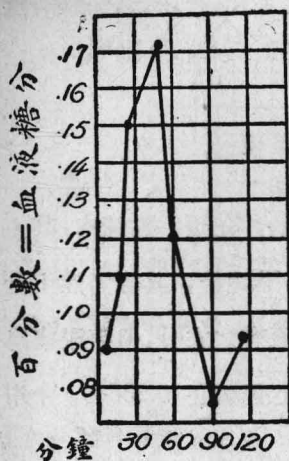 百分數=血液糖分
.17
.16
.15
.14
.13
.12
.11
.10
.09
.08
分鐘 30 60 90 120